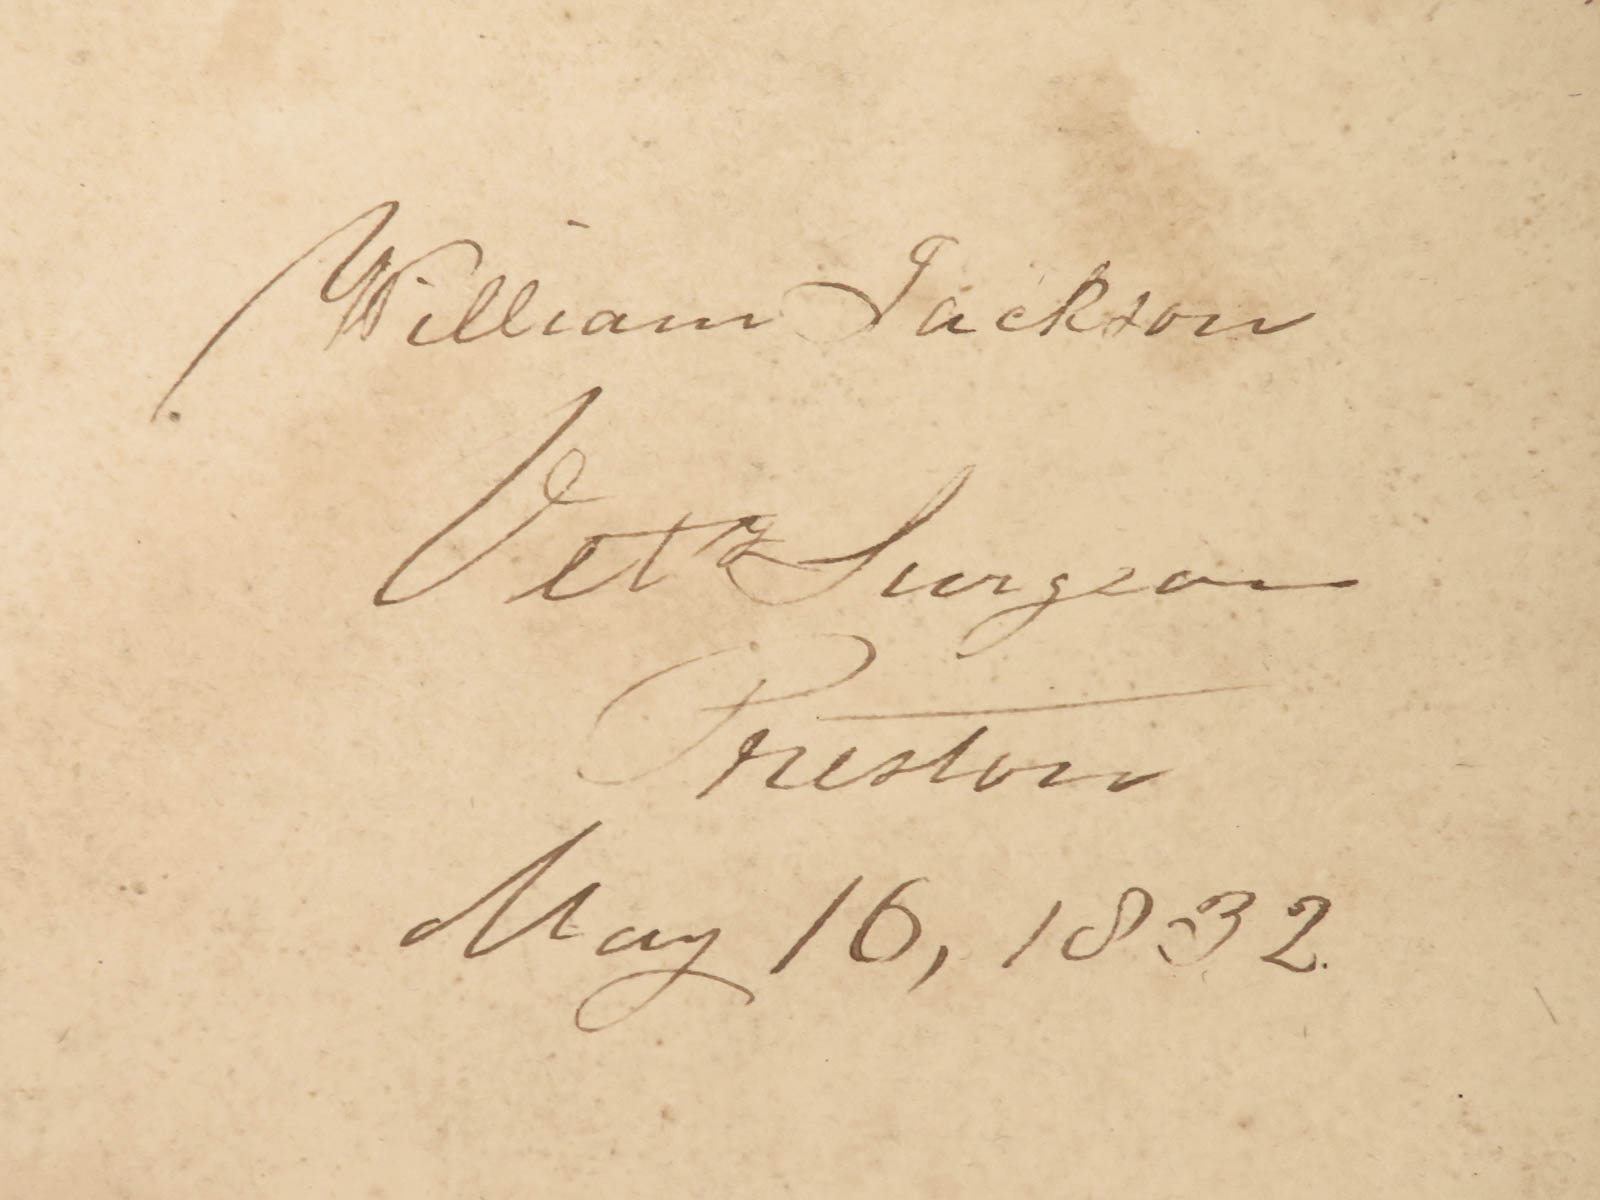 William Jackson
Vety Surgeon
Preston
May 16, 1832.